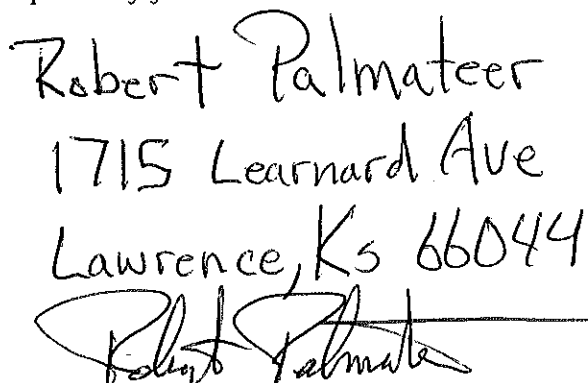 Robert Palmateer
1715 Learnard Ave
Lawrence, Ks 66044
Robert Palmateer